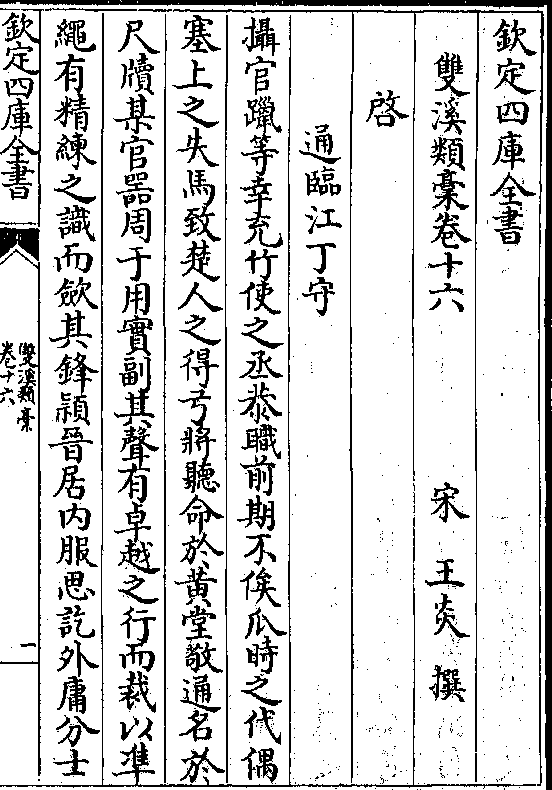 欽定四庫全書
雙溪類稾卷十六
宋 王炎 撰
啓
通臨江丁守
攝官躐等幸充竹使之丞㳟職前期不俟瓜時之代偶
塞上之失馬致楚人之得弓將聽命於黃堂敬通名於
尺牘某官器周于用實副其聲有卓越之行而裁以準
繩有精練之識而歛其鋒頴晉居内服思訖外庸分士
欽定四庫全書
雙溪類稾
卷十六
一